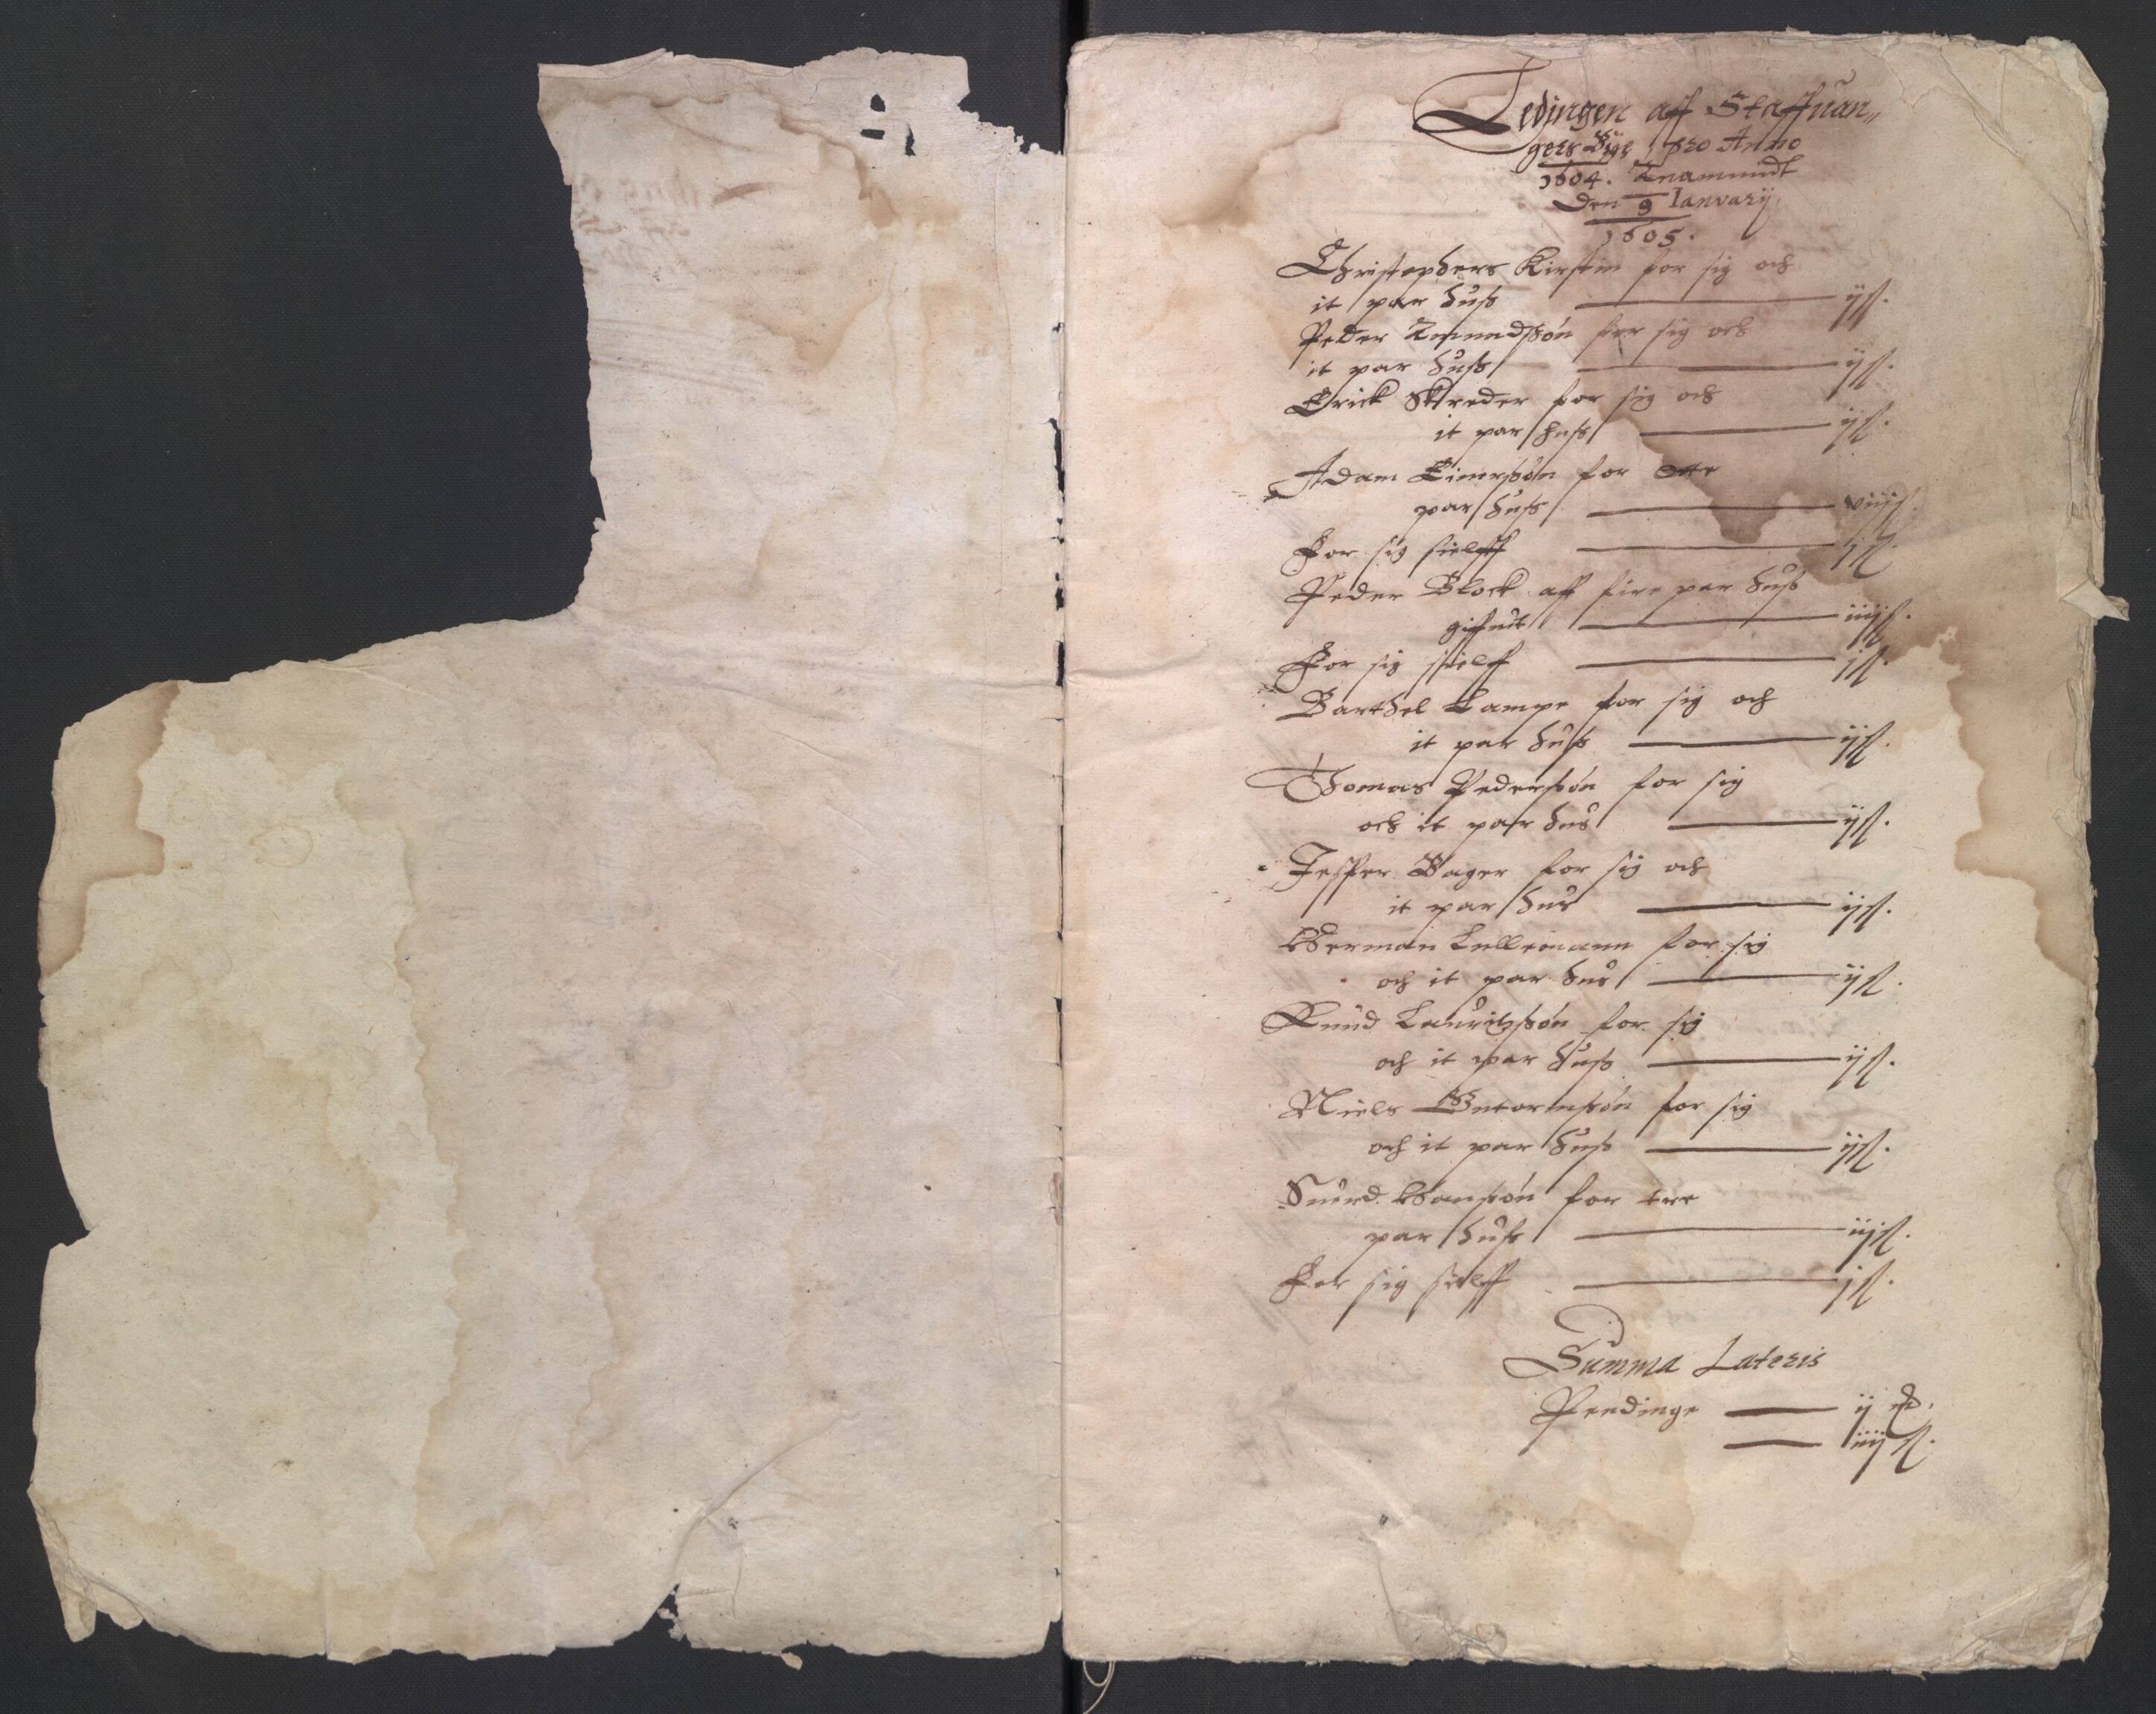 Ledingen aff Staffuan„
gers Byes pro Anno
1604. Anammidt
Den 9 Ianvarij
1605.
Christophers Kirstin for sig och
it par huss ijß.
Peder Amundssøn for sig och
it par huss ijß.
Erick Skreder for sig och
it par huss ijß.
Adam Einerssøn for otte
par huss viijß.
For sig sielff jß.
Peder Block aff fire par huss
giffuit iiijß.
For sig sielff jß.
Barthel Kampe for sig och
it par huss ijß.
Thomas Pederssøn for sig
och it par hus ijß.
Jesper Bager for sig och
it par hus ijß.
Herman for sig
och it par hus ijß.
Knud Lauritzssøn for sig
och it par huss ijß.
Niels Gutormssøn for sig
och it par huss ijß.
Siuerd Hanssøn for tre
par huss iijß.
For sig sielff jß.
Summa Lateris
Pendinge ij
iiij ß.